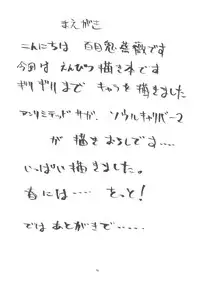 まえがき
こんにちは 百日鬼 です
今回は えんぴつ描き本です
ギリギリまで キャラを描きました
アンリミテッドサガ. ソウルキャリバー2
が 描きおろしです....
いっぱい描きました。
春には.... もっと!
では あとがきで......